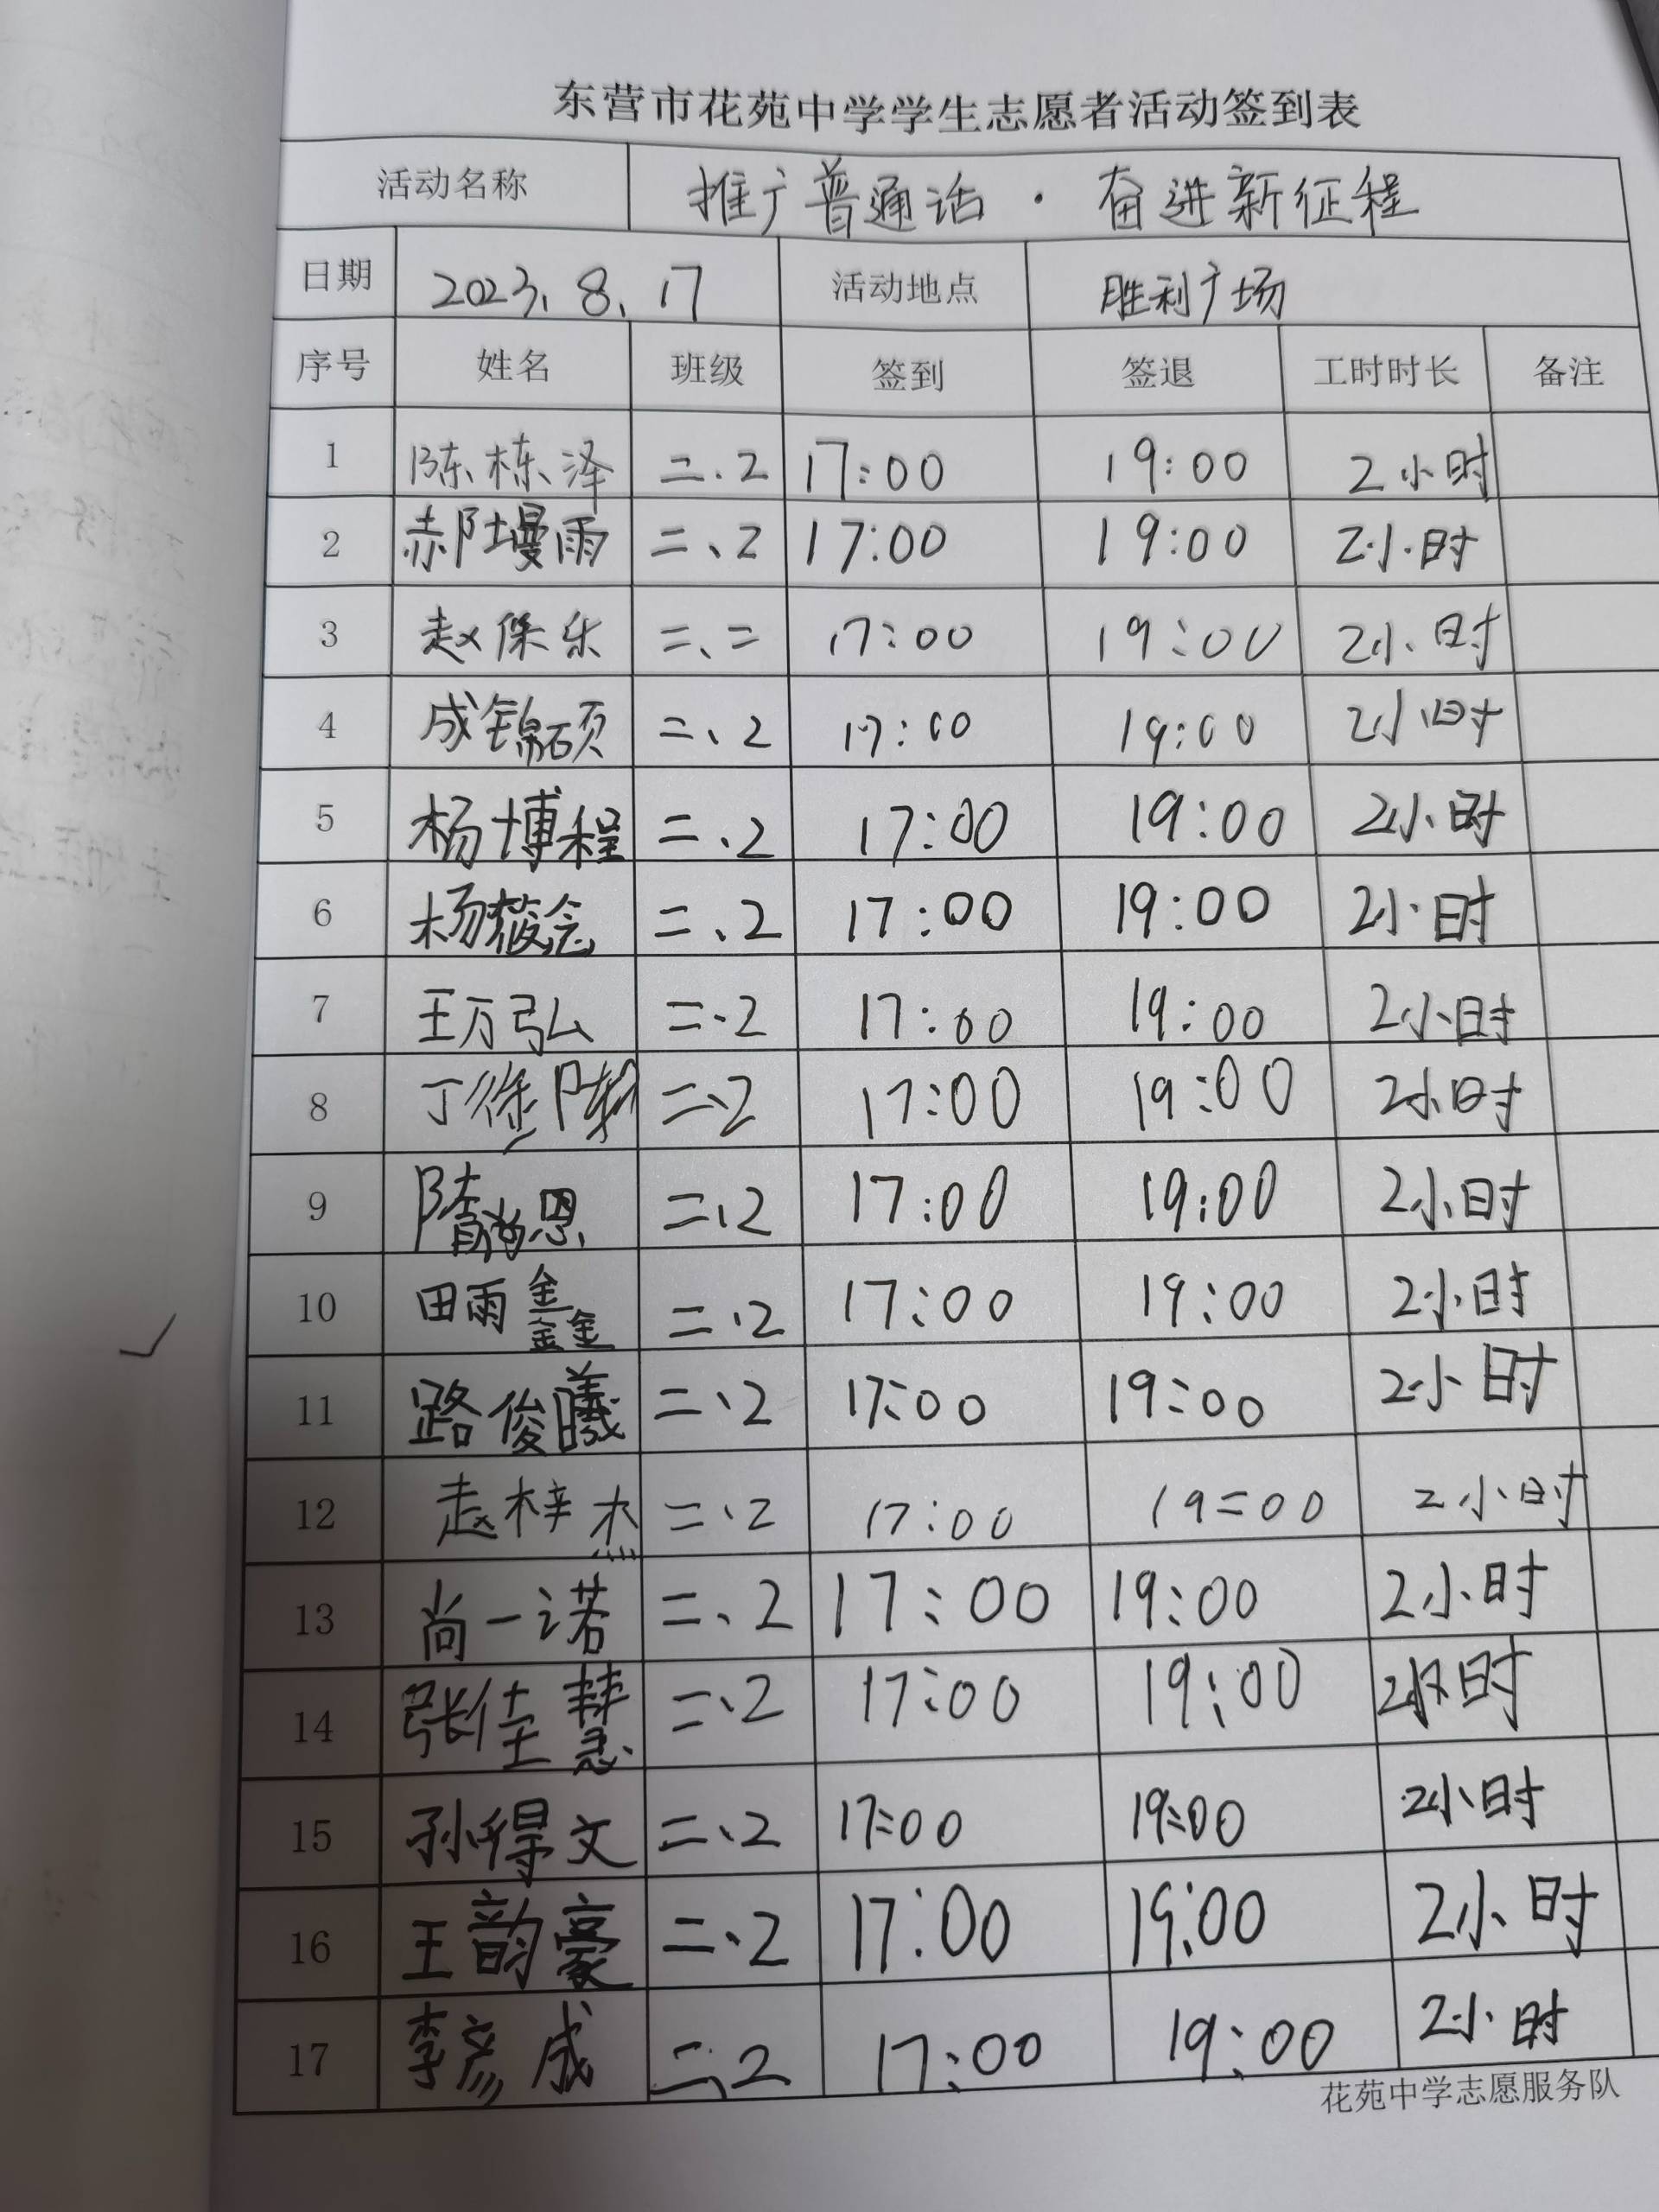 东营市花苑中学学生志愿者活动签到表
活动名称 推广普通话·奋进新征程
日期 2023.8.17 活动地点 胜利广场
序号 姓名 班级 签到 签退 工时时长 备注
1 陈栋泽 二.2 17:00 19:00 2小时
2 二、2 17:00 19:00 2小时
3 赵保乐 二、二 17:00 19:00 2小时
4 成锦硕 二、2 17:00 19:00 2小时
5 杨博程 二、2 17:00 19:00 2小时
6 二、2 17:00 19:00 2小时
7 王万弘 二、2 17:00 19:00 2小时
8 二、2 17:00 19:00 2小时
9 隋尚恩 二、2 17:00 19:00 2小时
10 田雨鑫 二、2 17:00 19:00 2小时
11 路俊曦 二、2 17:00 19:00 2小时
12 赵梓杰 二、2 17:00 19:00 2小时
13 尚一诺 二、2 17:00 19:00 2小时
14 张佳慧 二、2 17:00 19:00 2小时
15 孙得文 二、2 17:00 19:00 2小时
16 王韵豪 二、2 17:00 19:00 2小时
17 李彦成 二、2 17:00 19:00 2小时
花苑中学志愿服务队